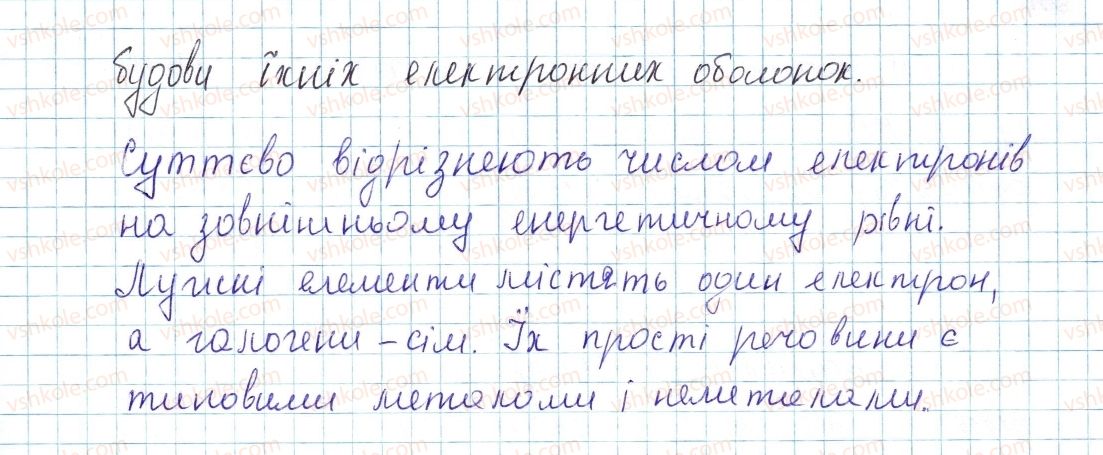 будови їхніх електронних оболонок.
Суттєво відрізнеють числом електронів
на зовнішньому енергетичному рівні.
Лужні елементи містять один електрон,
а галогени – сім. Їх прості речовини є
типовими металами і неметалами.